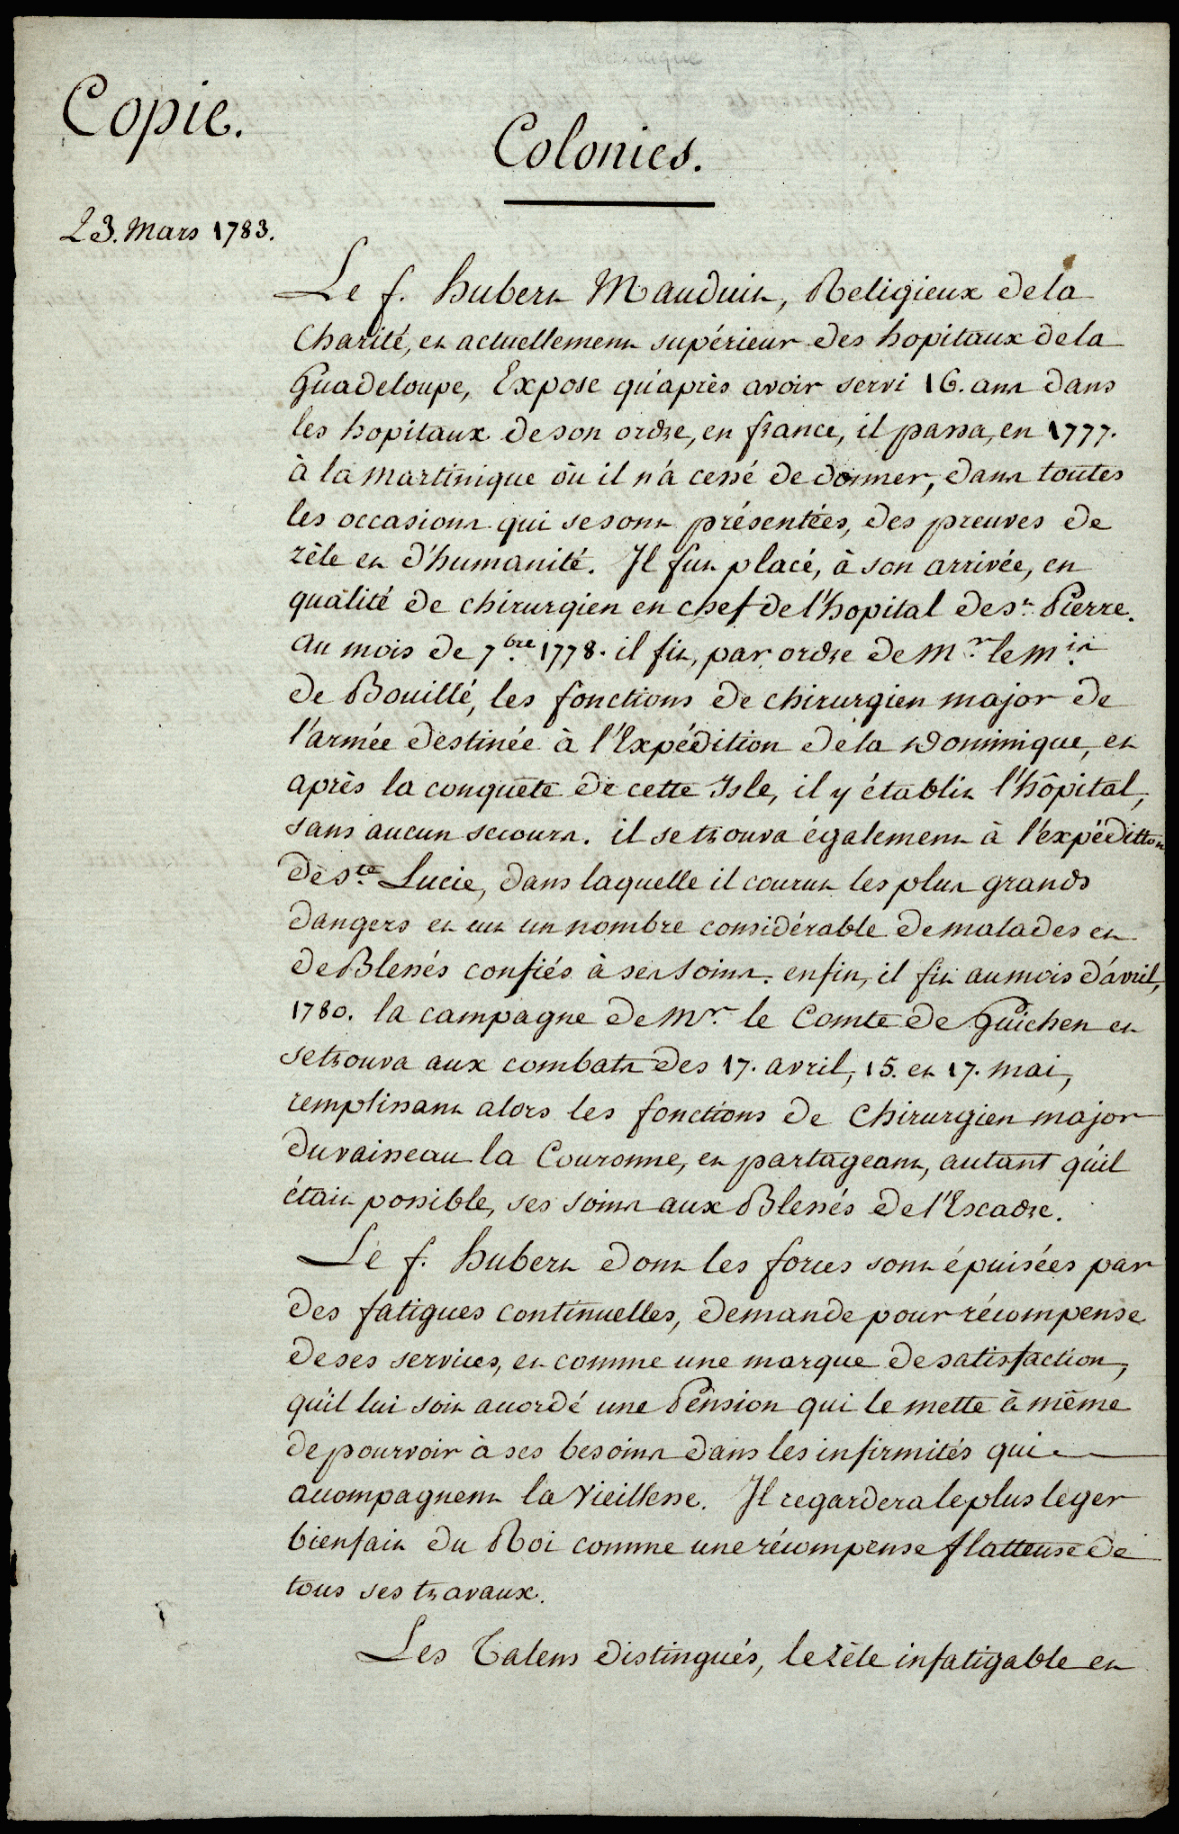 Copie.
Colonies.
23. Mars 1783.
Le f. hubert Mauduit, Religieux de la
Charité, et actuellement supérieur des hopitaux de la
Guadeloupe, Expose qu'après avoir servi 16. ans dans
les hopitaux de son ordre, en france, il passa, en 1777.
à la martinique où il n'a cessé de donner, dans toutes
les occasions qui se sont présentées, des preuves de
zèle et d'humanité. Il fut placé, à son arrivée, en
qualité de chirurgien en chef de l'hopital de st. Pierre.
au mois de 7bre 1778. il fit, par ordre de Mr. le mis
de Bouillé, les fonctions de chirurgien major de
l'armée destinée à l'Expédition de la dominique, et
après la conquête de cette Isle, il y établit l'hôpital,
sans aucun secours. il se trouva également à l'expédition
de ste. Lucie, dans laquelle il courut les plus grands
dangers et eut un nombre considérable de malades et
de Blessés confiés à ses soins. enfin, il fit au mois d'avril,
1780. la campagne de Mr. le Comte de Guichen et
se trouva aux combats des 17. avril, 15. et 17. mai,
remplissant alors les fonctions de Chirurgien major
du vaisseau la Couronne, et partageant, autant qu'il
était possible, ses soins aux Blessés de l'Escadre.
Le f. hubert dont les forces sont épuisées par
des fatigues continuelles, demande pour récompense
de ses services, et comme une marque de satisfaction,
qu'il lui soit accordé une Pension qui le mette à même
de pourvoir à ses besoins dans les infirmités qui
accompagnent la Vieillesse. Il regardera le plus leger
bienfait du Roi comme une récompense flatteuse de
tous ses travaux.
Les Talens distingués, le zèle infatigable et